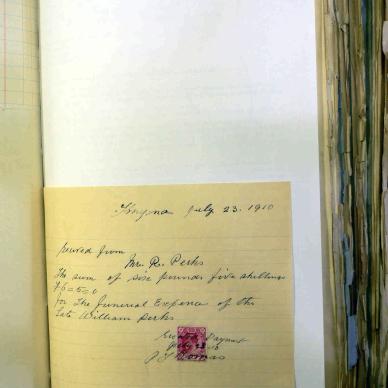 Knysna July 23. 1910
Received from
Mrs Perks
The sum of six pounds five shillings
£6=5=0
for the Funeral Expence of the
late William Perks
Payment
July 23
Thomas